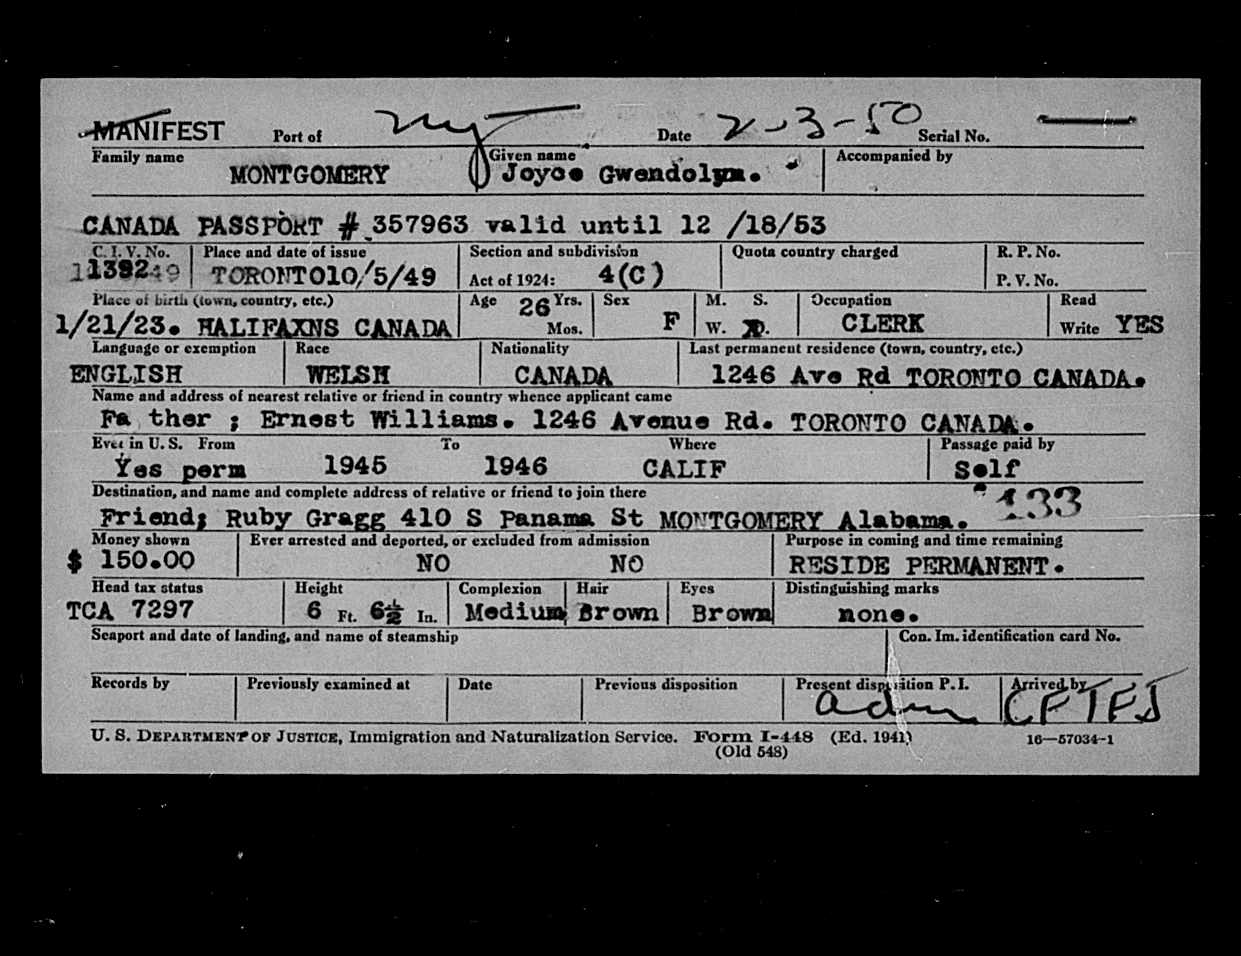 MANIFEST Port of Ny Date 2-3-50 Serial No.
Family name Given name Accompanied by
MONTGOMERY Joyce Gwendolyn.
CANADA PASSPORT # 357963 valid until 12 /18/53
C. I. V. No. Place and date of issue Section and subdivision Quota country charged R. P. No.
TORONTO10/5/49 Act of 1924: 4(C) P. V. No.
Place of birth (town, country, etc.) Age 26 Yrs. Sex M. S. Occupation Read
1/21/23. HALIFAXNS CANADA Mos. F W. D. CLERK Write YES
Language or exemption Race Nationality Last permanent residence (town, country, etc.)
ENGLISH WELSH CANADA 1246 Ave Rd TORONTO CANADA.
Name and address of nearest relative or friend in country whence applicant came
Fa ther ; Ernest Williams. 1246 Avenue Rd. TORONTO CANADA.
Ever in U. S. From To Where Passage paid by
Yes perm 1945 1946 CALIF Self
Destination, and name and complete address of relative or friend to join there 133
Friend; Ruby Gragg 410 S Panama St MONTGOMERY Alabama.
Money shown Ever arrested and deported, or excluded from admission Purpose in coming and time remaining
$ 150.00 NO NO RESIDE PERMANENT.
Head tax status Height Complexion Hair Eyes Distinguishing marks
TCA 7297 6 Ft. 6½ In. Medium Brown Brown none.
Seaport and date of landing, and name of steamship Con. Im. identification card No.
Records by Previously examined at Date Previous disposition Present disposition P. I. Arrived by
adm
U. S. DEPARTMENT OF JUSTICE, Immigration and Naturalization Service. Form I-448 (Ed. 1941) 16—57034-1
(Old 548)